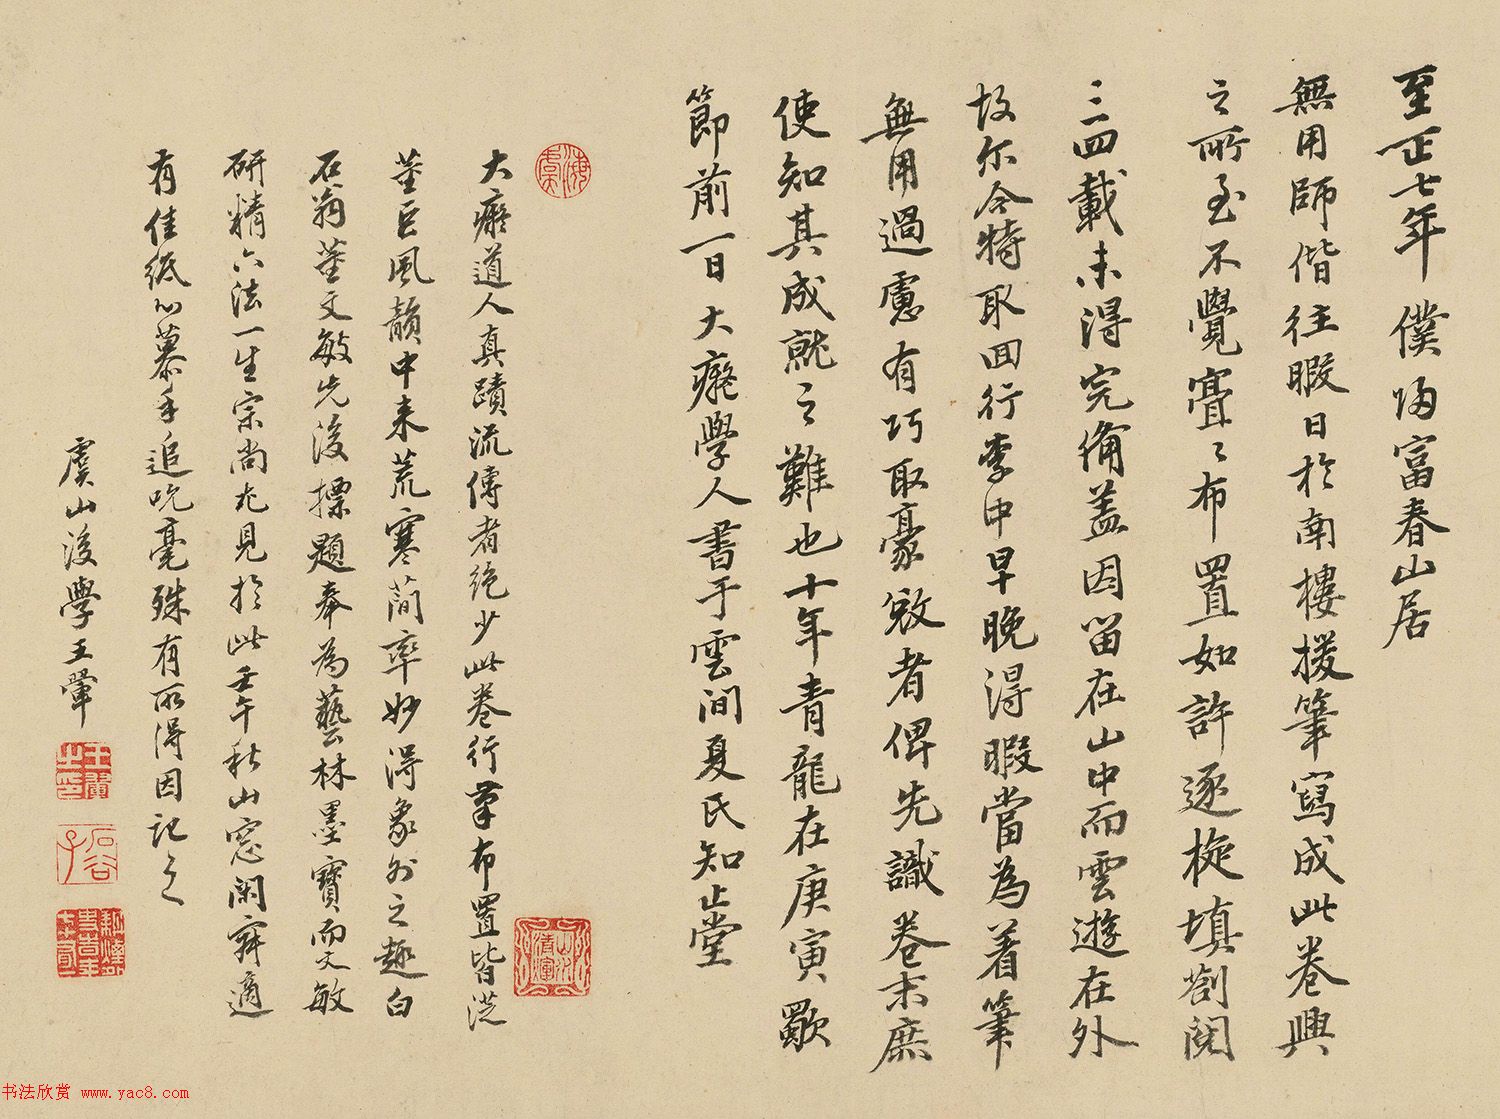 至正七年僕歸富春山居
無用師偕往暇日於南樓援筆寫成此卷興
之所至不覺亹〻布置如許逐旋填劄閱
三四載未得完備盖因留在山中而雲遊在外
故尔今特取回行李中早晚得暇當為着筆
無用過慮有巧取豪敚者俾先識卷末庶
使知其成就之難也十年青龍在庚寅歜
節前一日大癡學人書于雲間夏氏知止堂
大癡道人真蹟流傳者絶少此卷行筆布置皆從
董巨風韻中来荒寒蕳率妙得象外之趣白
石翁董文敏先後摽題奉為藝林墨寶而文敏
研精六法一生宗尚尤見於此壬午秋山窓閑寂適
有佳紙心慕手追吮毫殊有所得因記之
虞山後學王翬
王翬之印
石谷子
书法欣赏 www.yac8.com